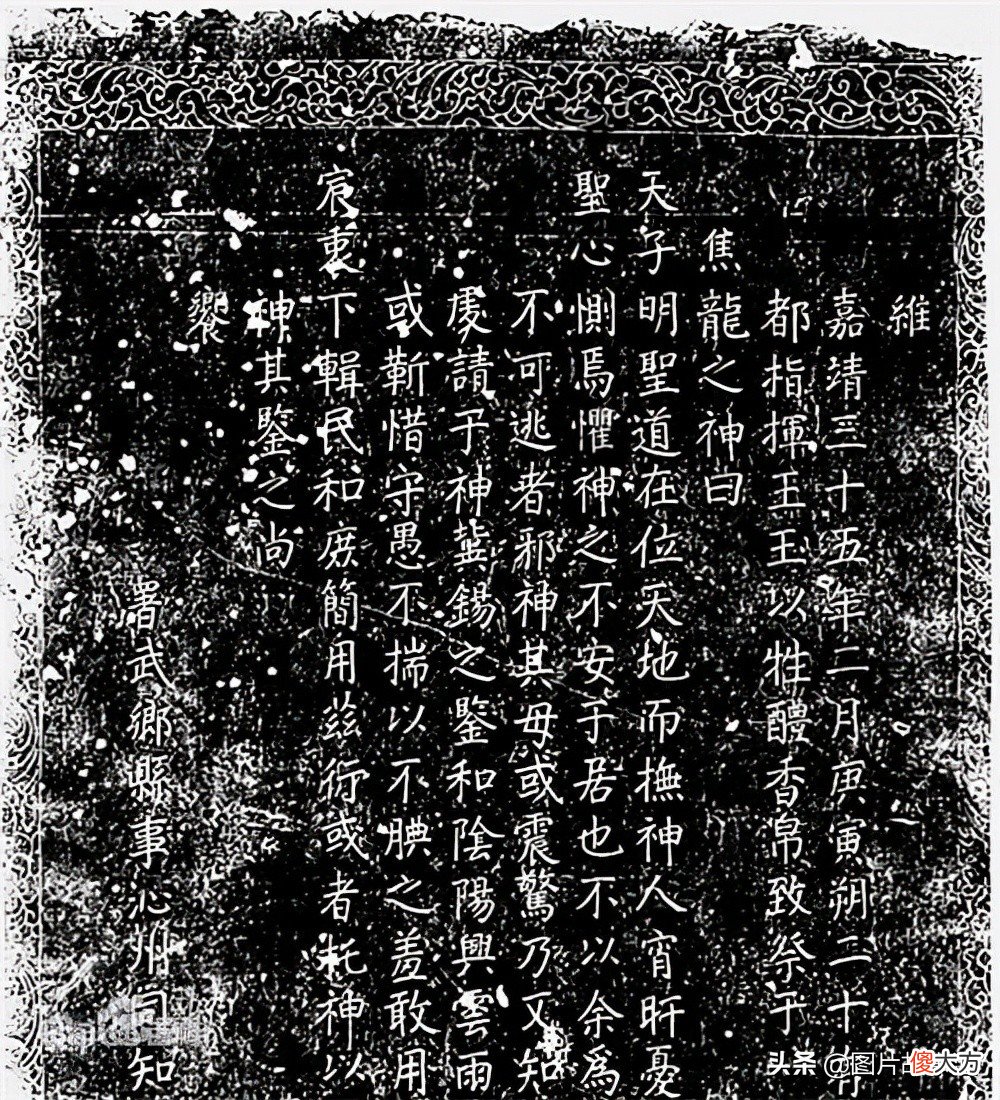 維
嘉靖三十五年二月庚寅朔二十有
都指揮王玉以牲醴香帛致祭于
焦龍之神曰
天子明聖道在位天地而撫神人宵旰憂
聖心惻焉懼神之不安于居也不以余為
不可逃者邪神其毋或震驚乃又知
虔請于神冀錫之鑒和陰陽興雲雨
或靳惜守愚不揣以不腆之羞敢用
宸衷下輯民和庶簡用茲衍或者託神以
神其鑒之尚
饗
署武鄉縣事沁州同知
头条 @图片故傻大方